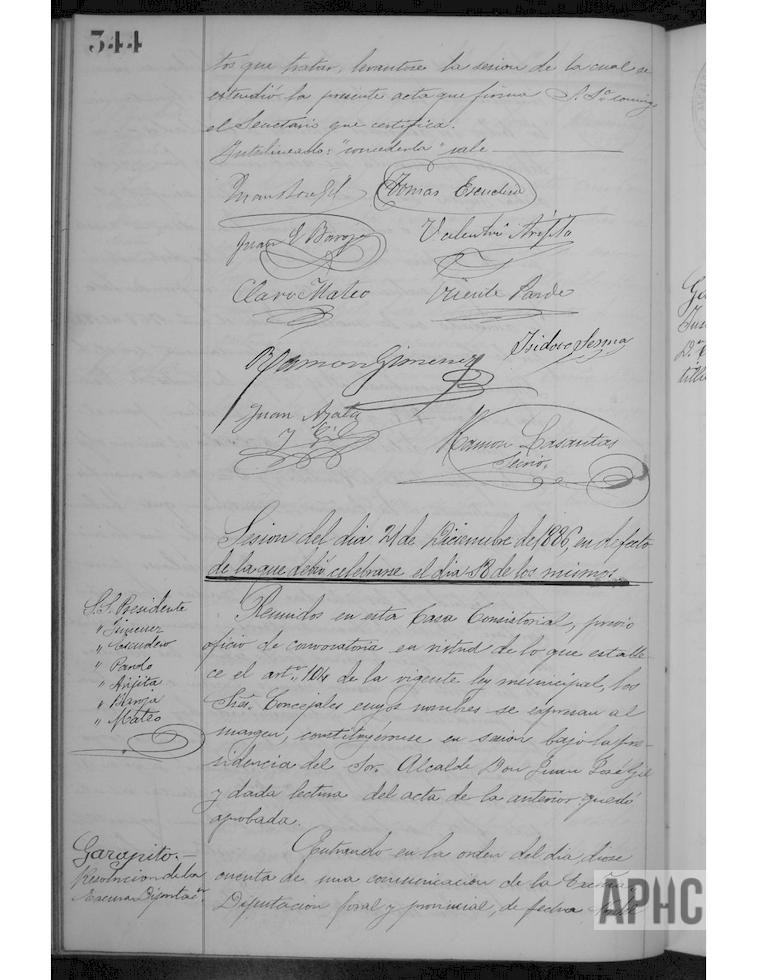 344
tos que tratar, levantose la sesion de la cual se
estendió la presente acta que firma S. Sª conmigo
el Secretario que certifica.
Interlineado: "concederla" vale
Juan José Gil Tomas Escudero
Juan J Baroja Valentin Arijita
Claro Mateo Vicente Pardo
Ramon Gimenez Isidoro Serma
Juan Azata
y G.
Ramon Casaritas
Secrio.
Sesion del dia 21 de Diciembre de 1886, en defecto
de la que debió celebrarse el dia 18 de los mismos.
S.S. Presidente
" Gimenez
" Escudero
" Pardo
" Arijita
" Baroja
" Mateo
Reunidos en esta Casa Consistorial, previo
oficio de convocatoria en virtud de lo que estable-
ce el artº. 104 de la vigente ley municipal, los
Sres. Concejales cuyos nombres se expresan al
margen, constituyéronse en sesion bajo la pre-
sidencia del Sor. Alcalde Don Juan José Gil
y dada lectura del acta de la anterior quedó
aprobada.
Garapito.—
Resolucion de la
Excma Diputacon
Entrando en la orden del dia, diose
cuenta de una comunicacion de la Excma.
Diputacion foral y provincial, de fecha
APHC